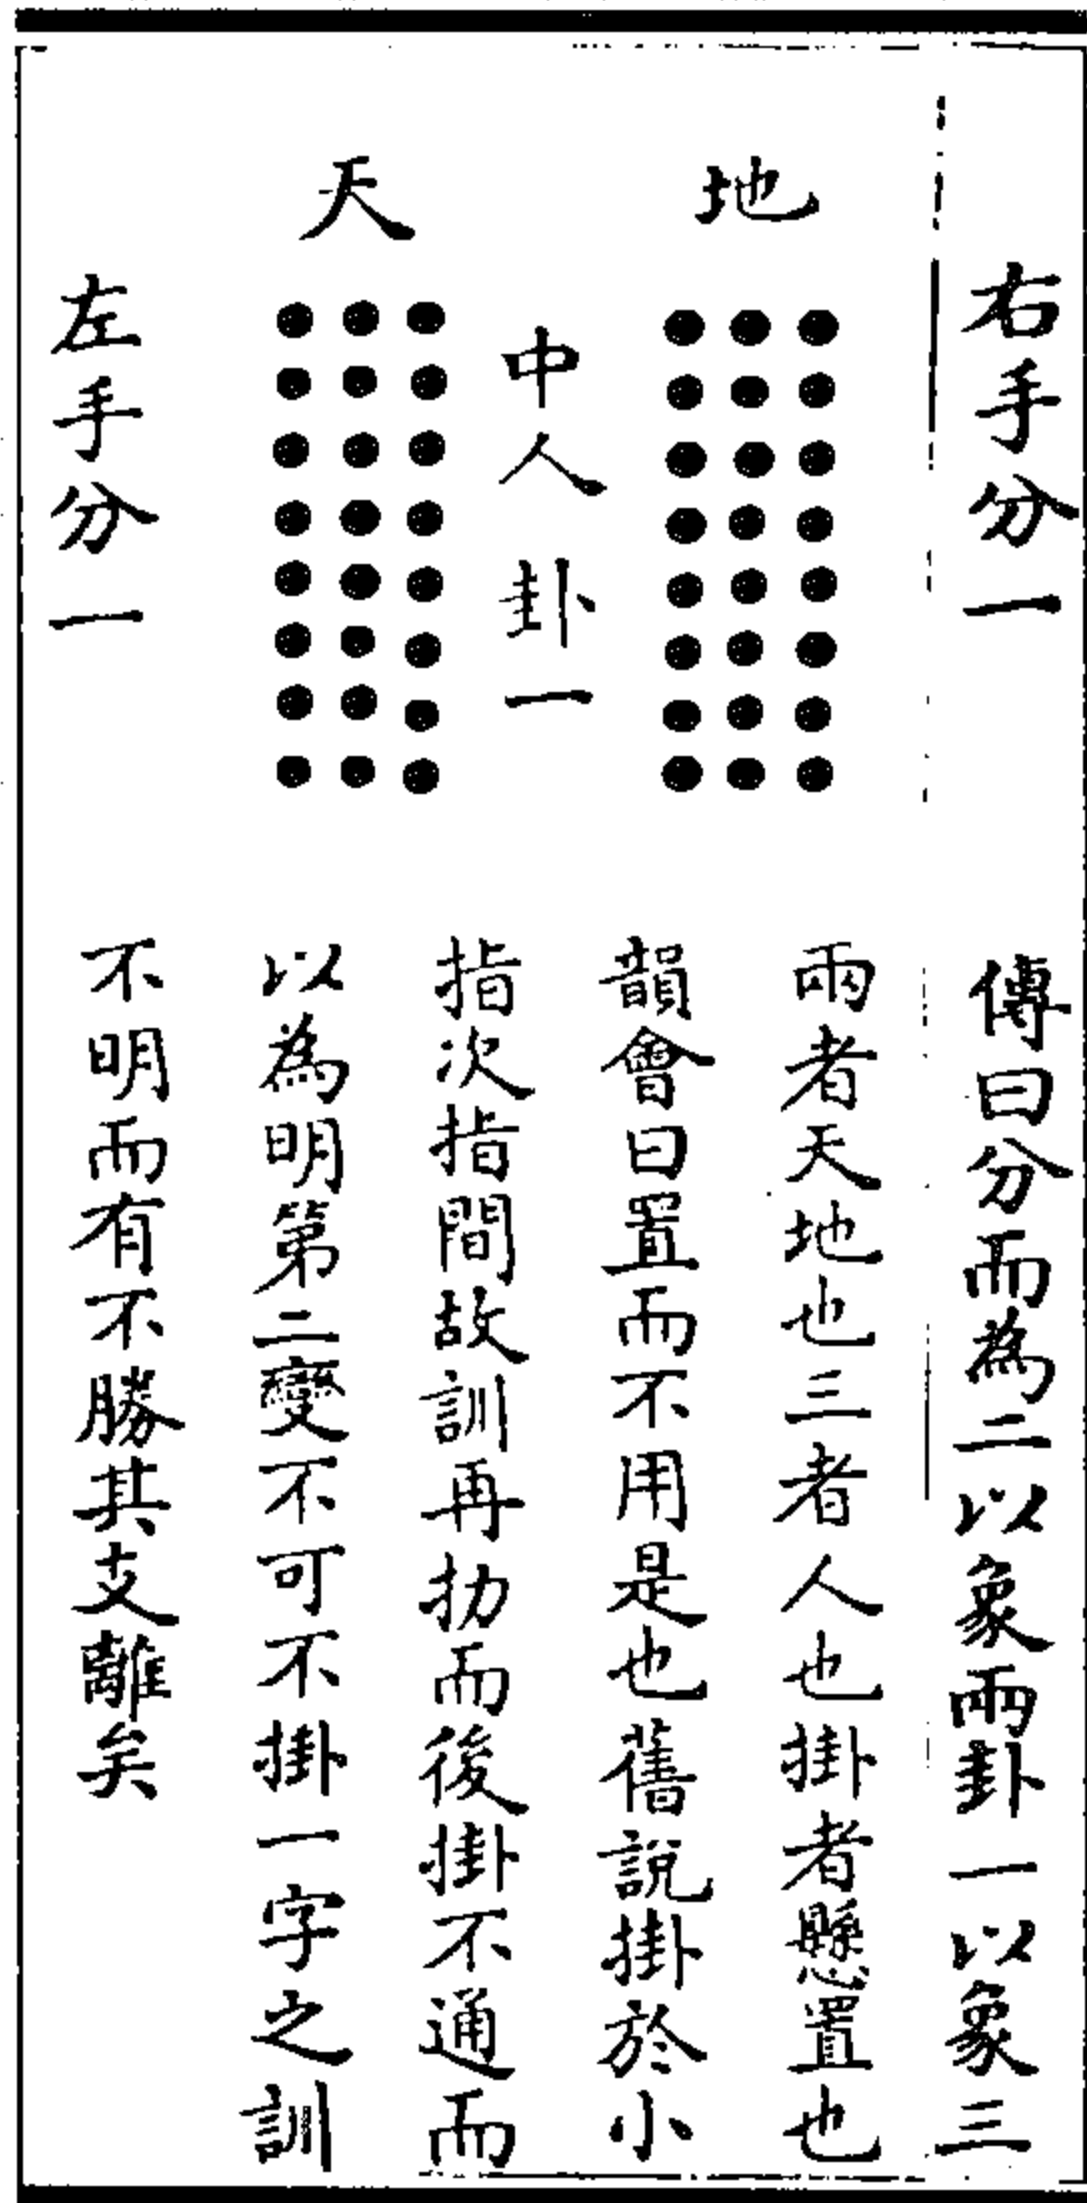 右手分一
地
中人卦一
天
左手分一
傳曰分而為二以象兩卦一以象三
兩者天地也三者人也掛者懸置也
韻會曰置而不用是也舊說掛於小
指次指間故訓再扐而後掛不通而
以為明第二變不可不掛一字之訓
不明而有不勝其支離矣